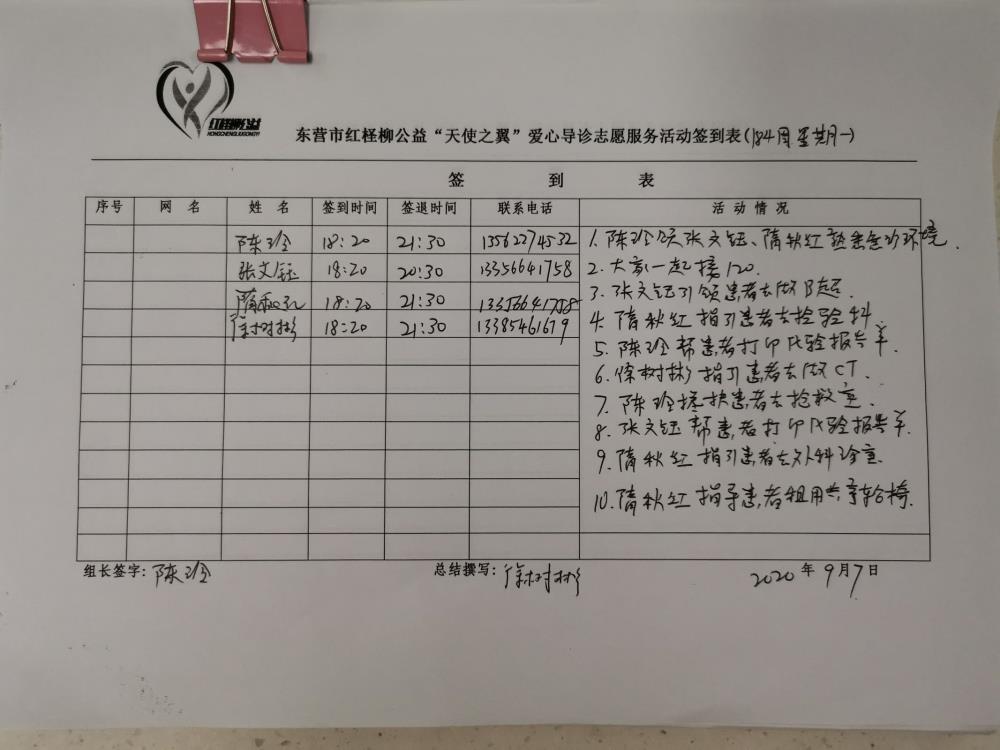 红柽柳公益
HONGCHENGLIUGONGYI
东营市红柽柳公益“天使之翼”爱心导诊志愿服务活动签到表(184周星期一)
签 到 表
序号 网 名 姓 名 签到时间 签退时间 联系电话 活 动 情 况
陈玲 18:20 21:30 13562274532
张文钰 18:20 20:30 13356641758
隋秋红 18:20 21:30 13356641758
徐树彬 18:20 21:30 13385461679
1. 陈玲领张文钰、隋秋红熟悉急诊环境.
2. 大家一起接120.
3. 张文钰引领患者去做B超.
4. 隋秋红指引患者去检验科.
5. 陈玲帮患者打印化验报告单.
6. 徐树彬指引患者去做CT.
7. 陈玲搀扶患者去抢救室.
8. 张文钰帮患者打印化验报告单.
9. 隋秋红指引患者去外科诊室
10. 隋秋红指导患者租用共享轮椅.
组长签字: 陈玲 总结撰写: 徐树彬 2020年9月7日